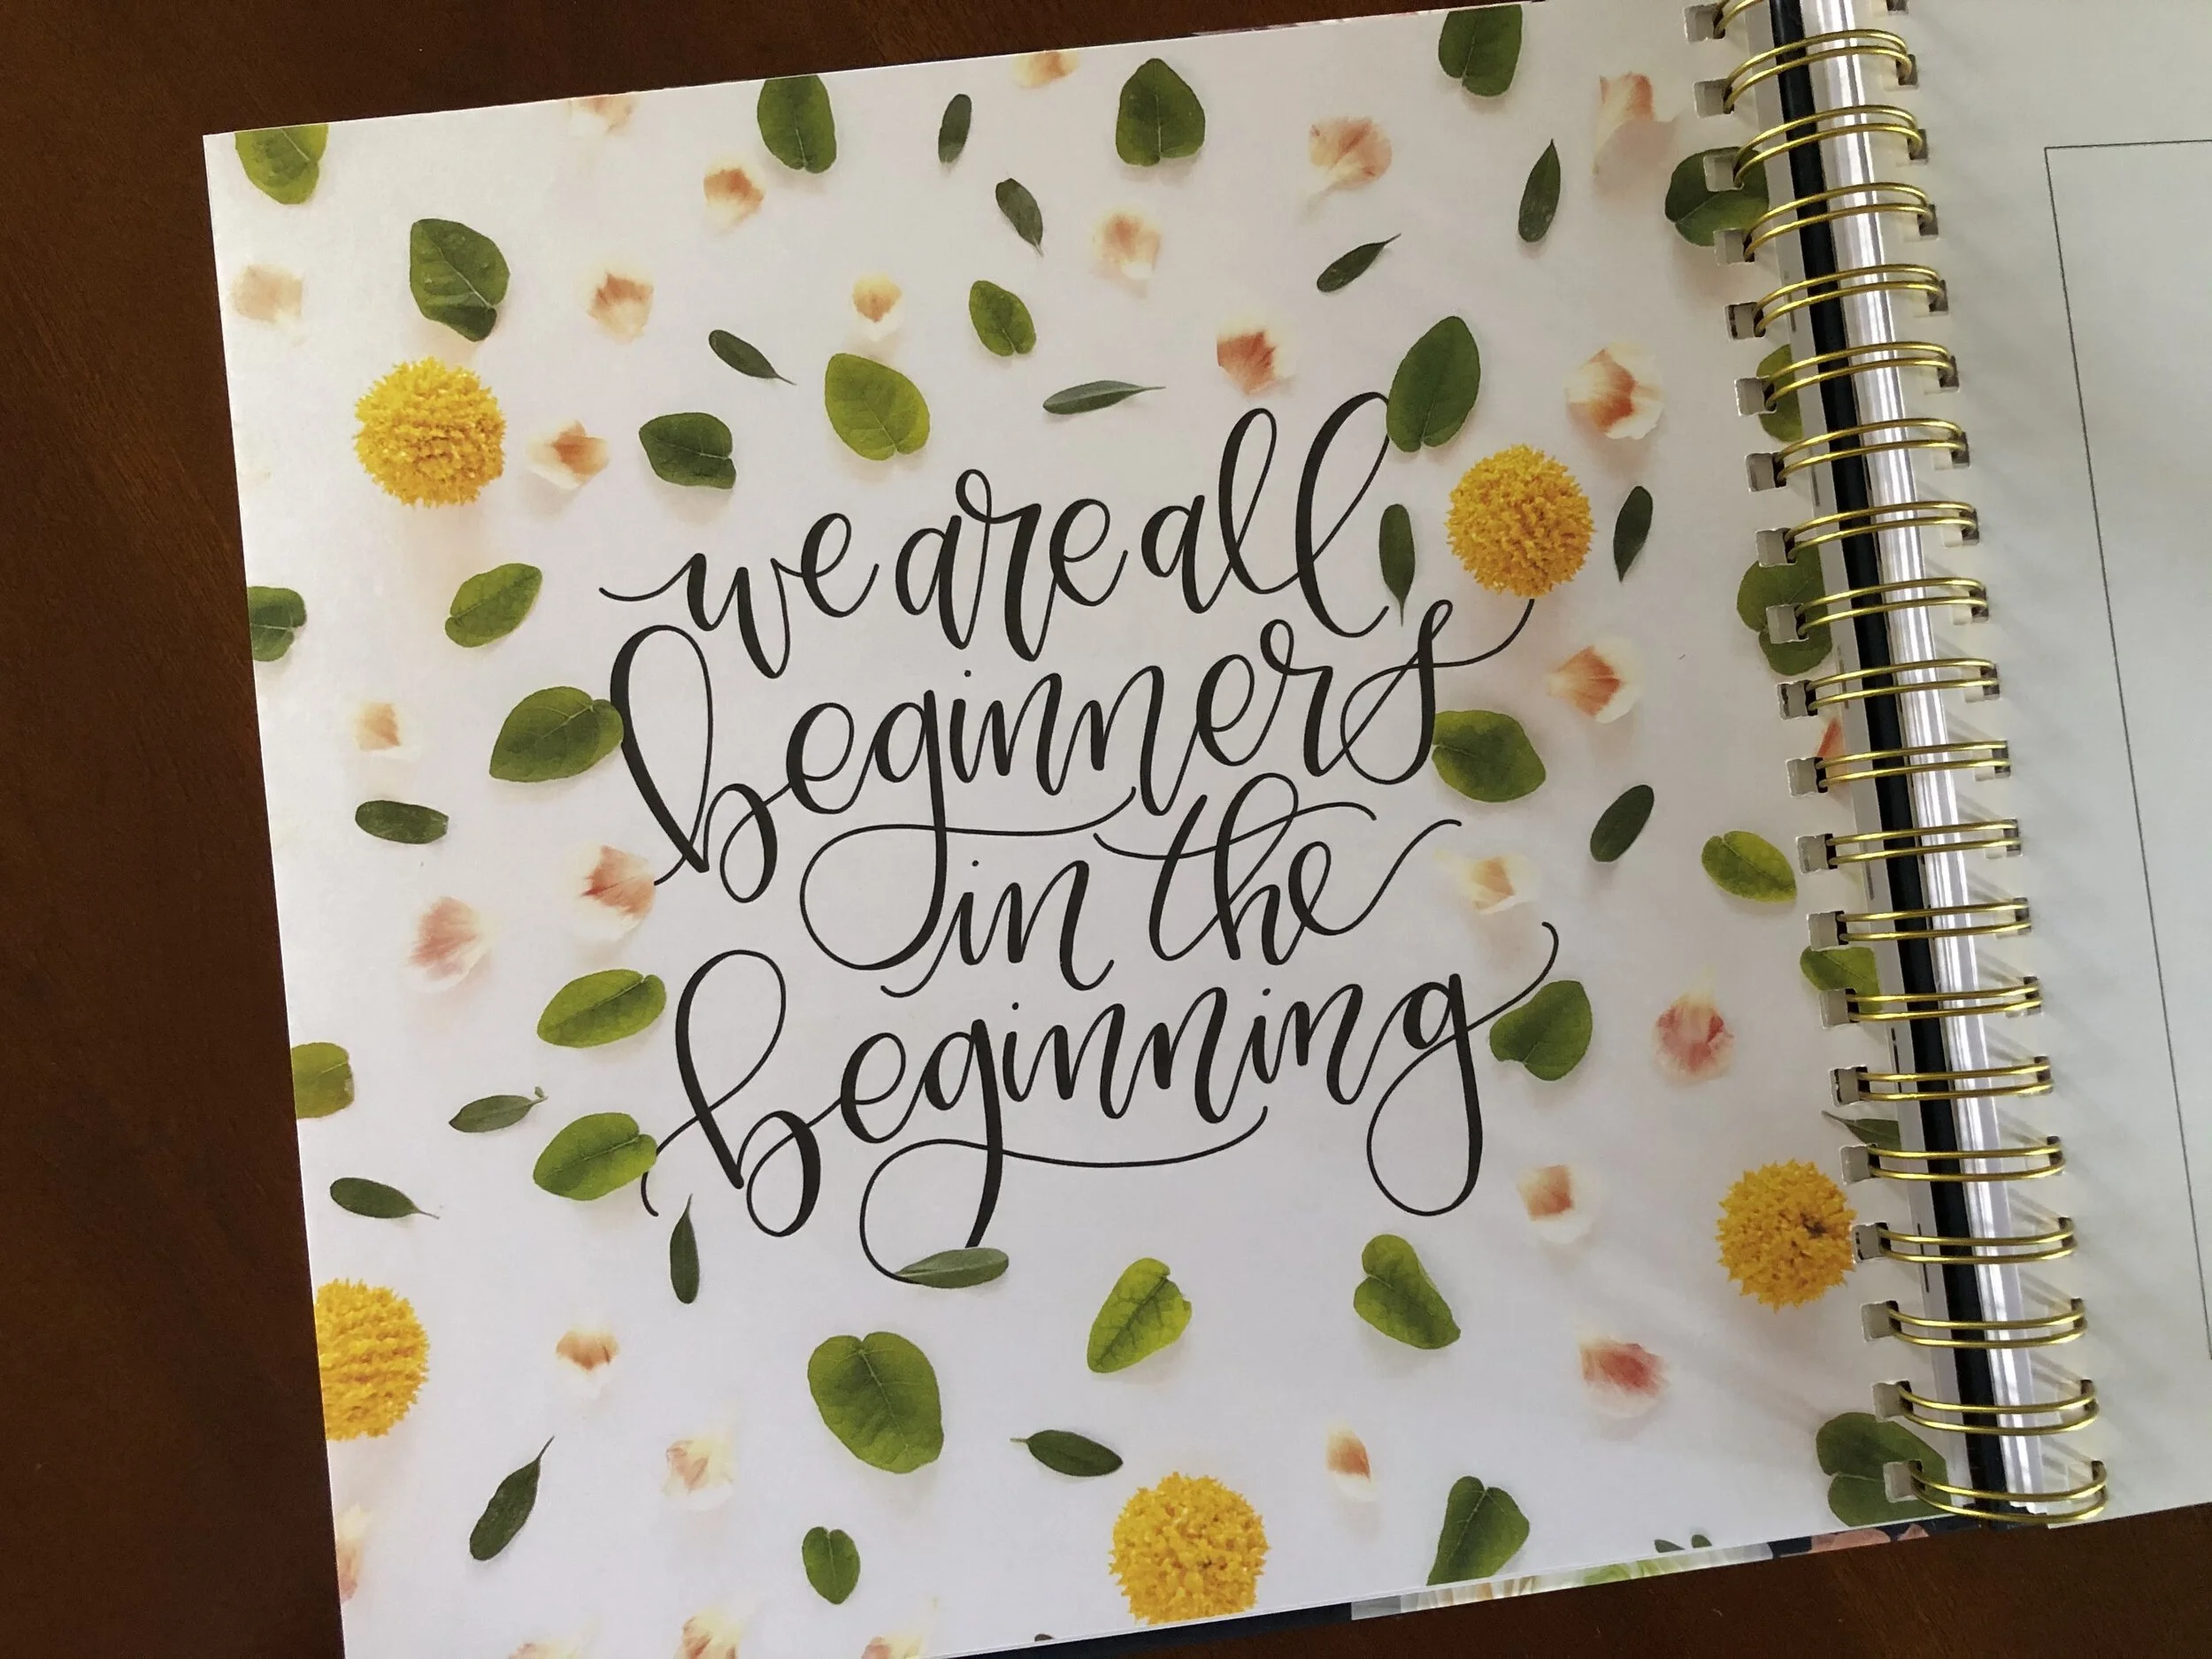 we are all
beginners
in the
beginning